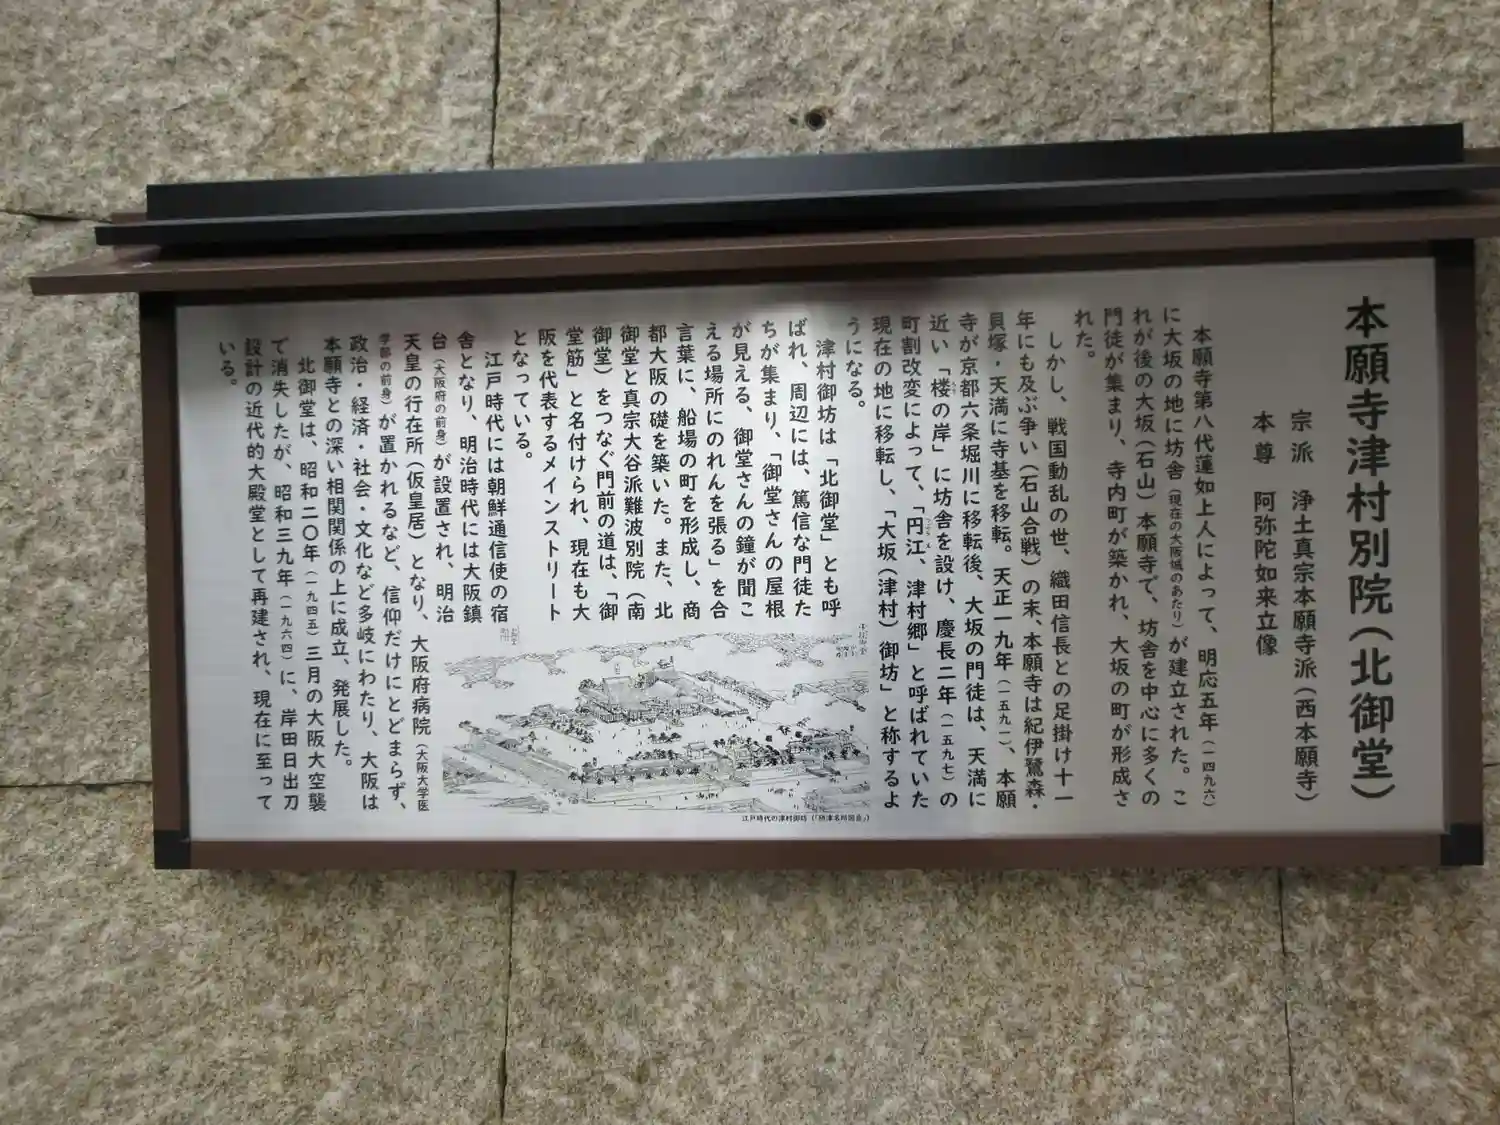 本願寺津村別院(北御堂)
宗派 浄土真宗本願寺派(西本願寺)
本尊 阿弥陀如来立像
本願寺第八代蓮如上人によって、明応五年(一四九六)
に大坂の地に坊舎(現在の大阪城のあたり)が建立された。こ
れが後の大坂(石山)本願寺で、坊舎を中心に多くの
門徒が集まり、寺内町が築かれ、大坂の町が形成さ
れた。
しかし、戦国動乱の世、織田信長との足掛け十一
年にも及ぶ争い(石山合戦)の末、本願寺は紀伊鷺森・
貝塚・天満に寺基を移転。天正一九年(一五九一)、本願
寺が京都六条堀川に移転後、大坂の門徒は、天満に
近い「楼の岸」に坊舎を設け、慶長二年(一五九七)の
町割改変によって、「円江、津村郷」と呼ばれていた
現在の地に移転し、「大坂(津村)御坊」と称するよ
うになる。
津村御坊は「北御堂」とも呼
ばれ、周辺には、篤信な門徒た
ちが集まり、「御堂さんの屋根
が見える、御堂さんの鐘が聞こ
える場所にのれんを張る」を合
言葉に、船場の町を形成し、商
都大阪の礎を築いた。また、北
御堂と真宗大谷派難波別院(南
御堂)をつなぐ門前の道は、「御
堂筋」と名付けられ、現在も大
阪を代表するメインストリート
となっている。
江戸時代には朝鮮通信使の宿
舎となり、明治時代には大阪鎮
台(大阪府の前身)が設置され、明治
天皇の行在所(仮皇居)となり、大阪府病院(大阪大学医
学部の前身)が置かれるなど、信仰だけにとどまらず、
政治・経済・社会・文化など多岐にわたり、大阪は
本願寺との深い相関関係の上に成立、発展した。
北御堂は、昭和二〇年(一九四五)三月の大阪大空襲
で消失したが、昭和三九年(一九六四)に、岸田日出刀
設計の近代的大殿堂として再建され、現在に至って
いる。
江戸時代の津村御坊(「摂津名所図会」)